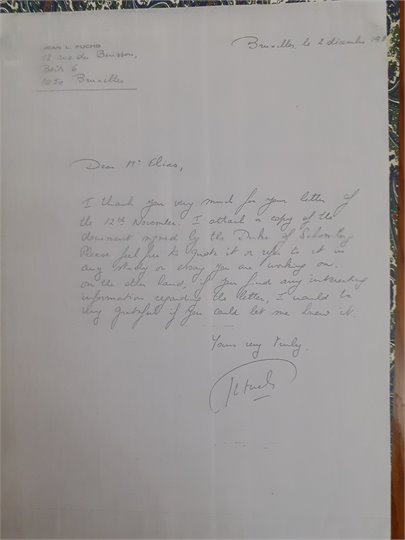 JEAN L. FUCHS
12 rue du Buisson,
Boîte 6
1050 Bruxelles
Bruxelles, le 2 décembre
Dear Mr Elias,
I thank you very much for your letter of
the 12th November. I attach a copy of the
document signed by the Duke of Schomberg.
Please feel free to quote it or refer to it in
any study or essay you are working on.
On the other hand, if you find any interesting
information regarding the letter, I would be
very grateful if you could let me know it.
Yours very truly.